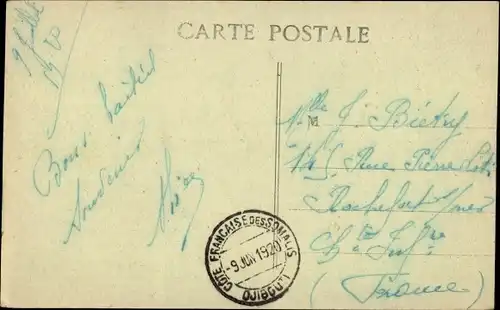 CARTE POSTALE
1920
Bons baisers
Souvenirs
M
Mlle J. Biétry
145 Rue Pierre Loti
Rochefort s/mer
Ch'te Inf're
(France)
COTE FRANÇAISE DES SOMALIS
-9 JUN 1920
DJIBOUTI